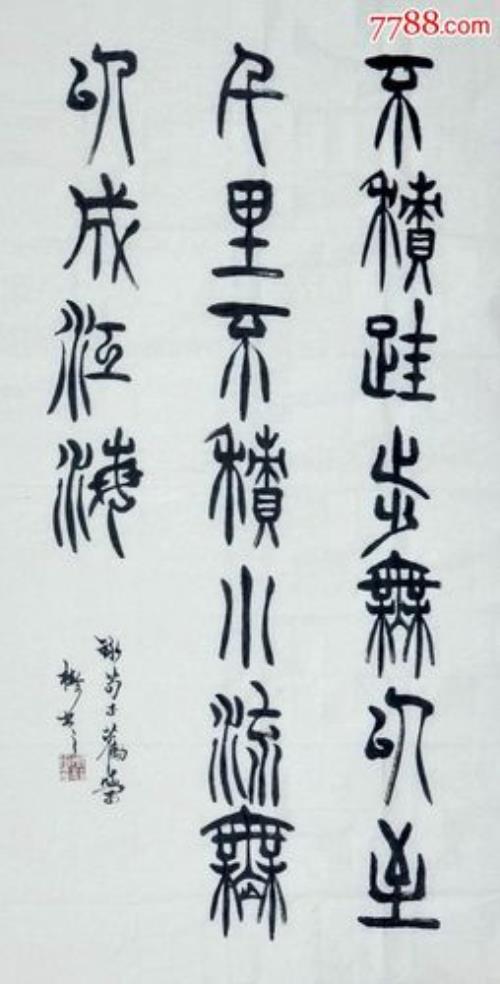 7788.com
不積跬步無以至
千里不積小流無
以成江海
錄荀子勸學